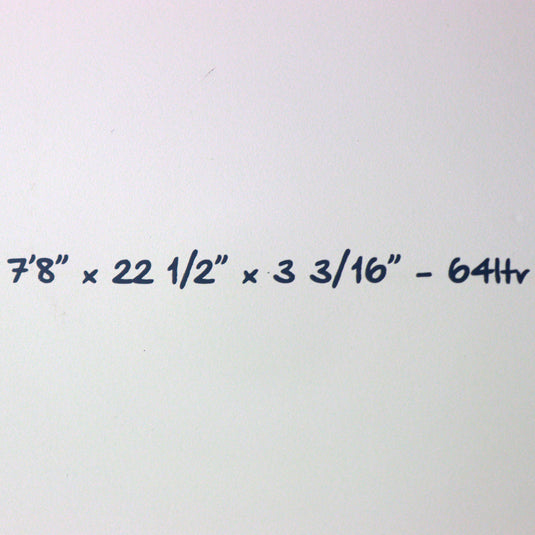 7'8" x 22 1/2" x 3 3/16" - 64ltr